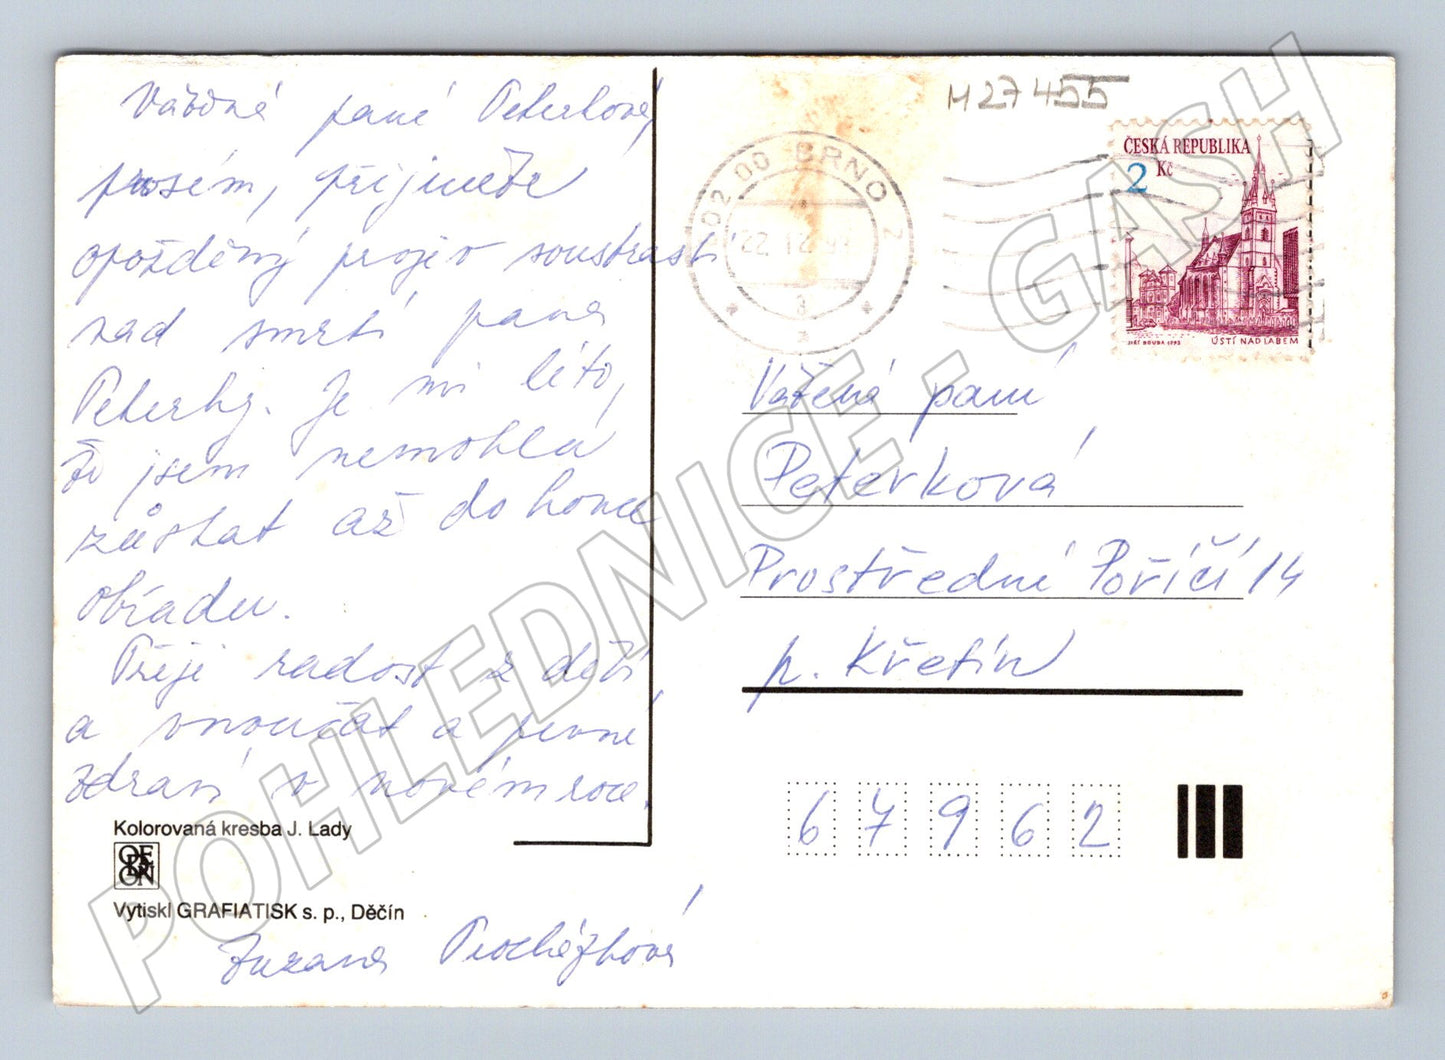 Vážená paní Peterková,
prosím, přijměte
opožděný projev soustrasti
nad smrtí pana
Peterky. Je mi líto,
že jsem nemohla
zůstat až do konce
obřadu.
Přeji radost z dětí
a vnoučat a pevné
zdraví v novém roce.
Kolorovaná kresba J. Lady
ODEON
Vytiskl GRAFIATISK s. p., Děčín
Zuzana Procházková
M27455
602 00 BRNO 2
22. 12. 93
3
ČESKÁ REPUBLIKA
2 Kč
JIŘÍ BOUDA 1993 ÚSTÍ NAD LABEM
Vážená paní
Peterková
Prostřední Poříčí 14
p. Křetín
67962
POHLEDNICE - GASH